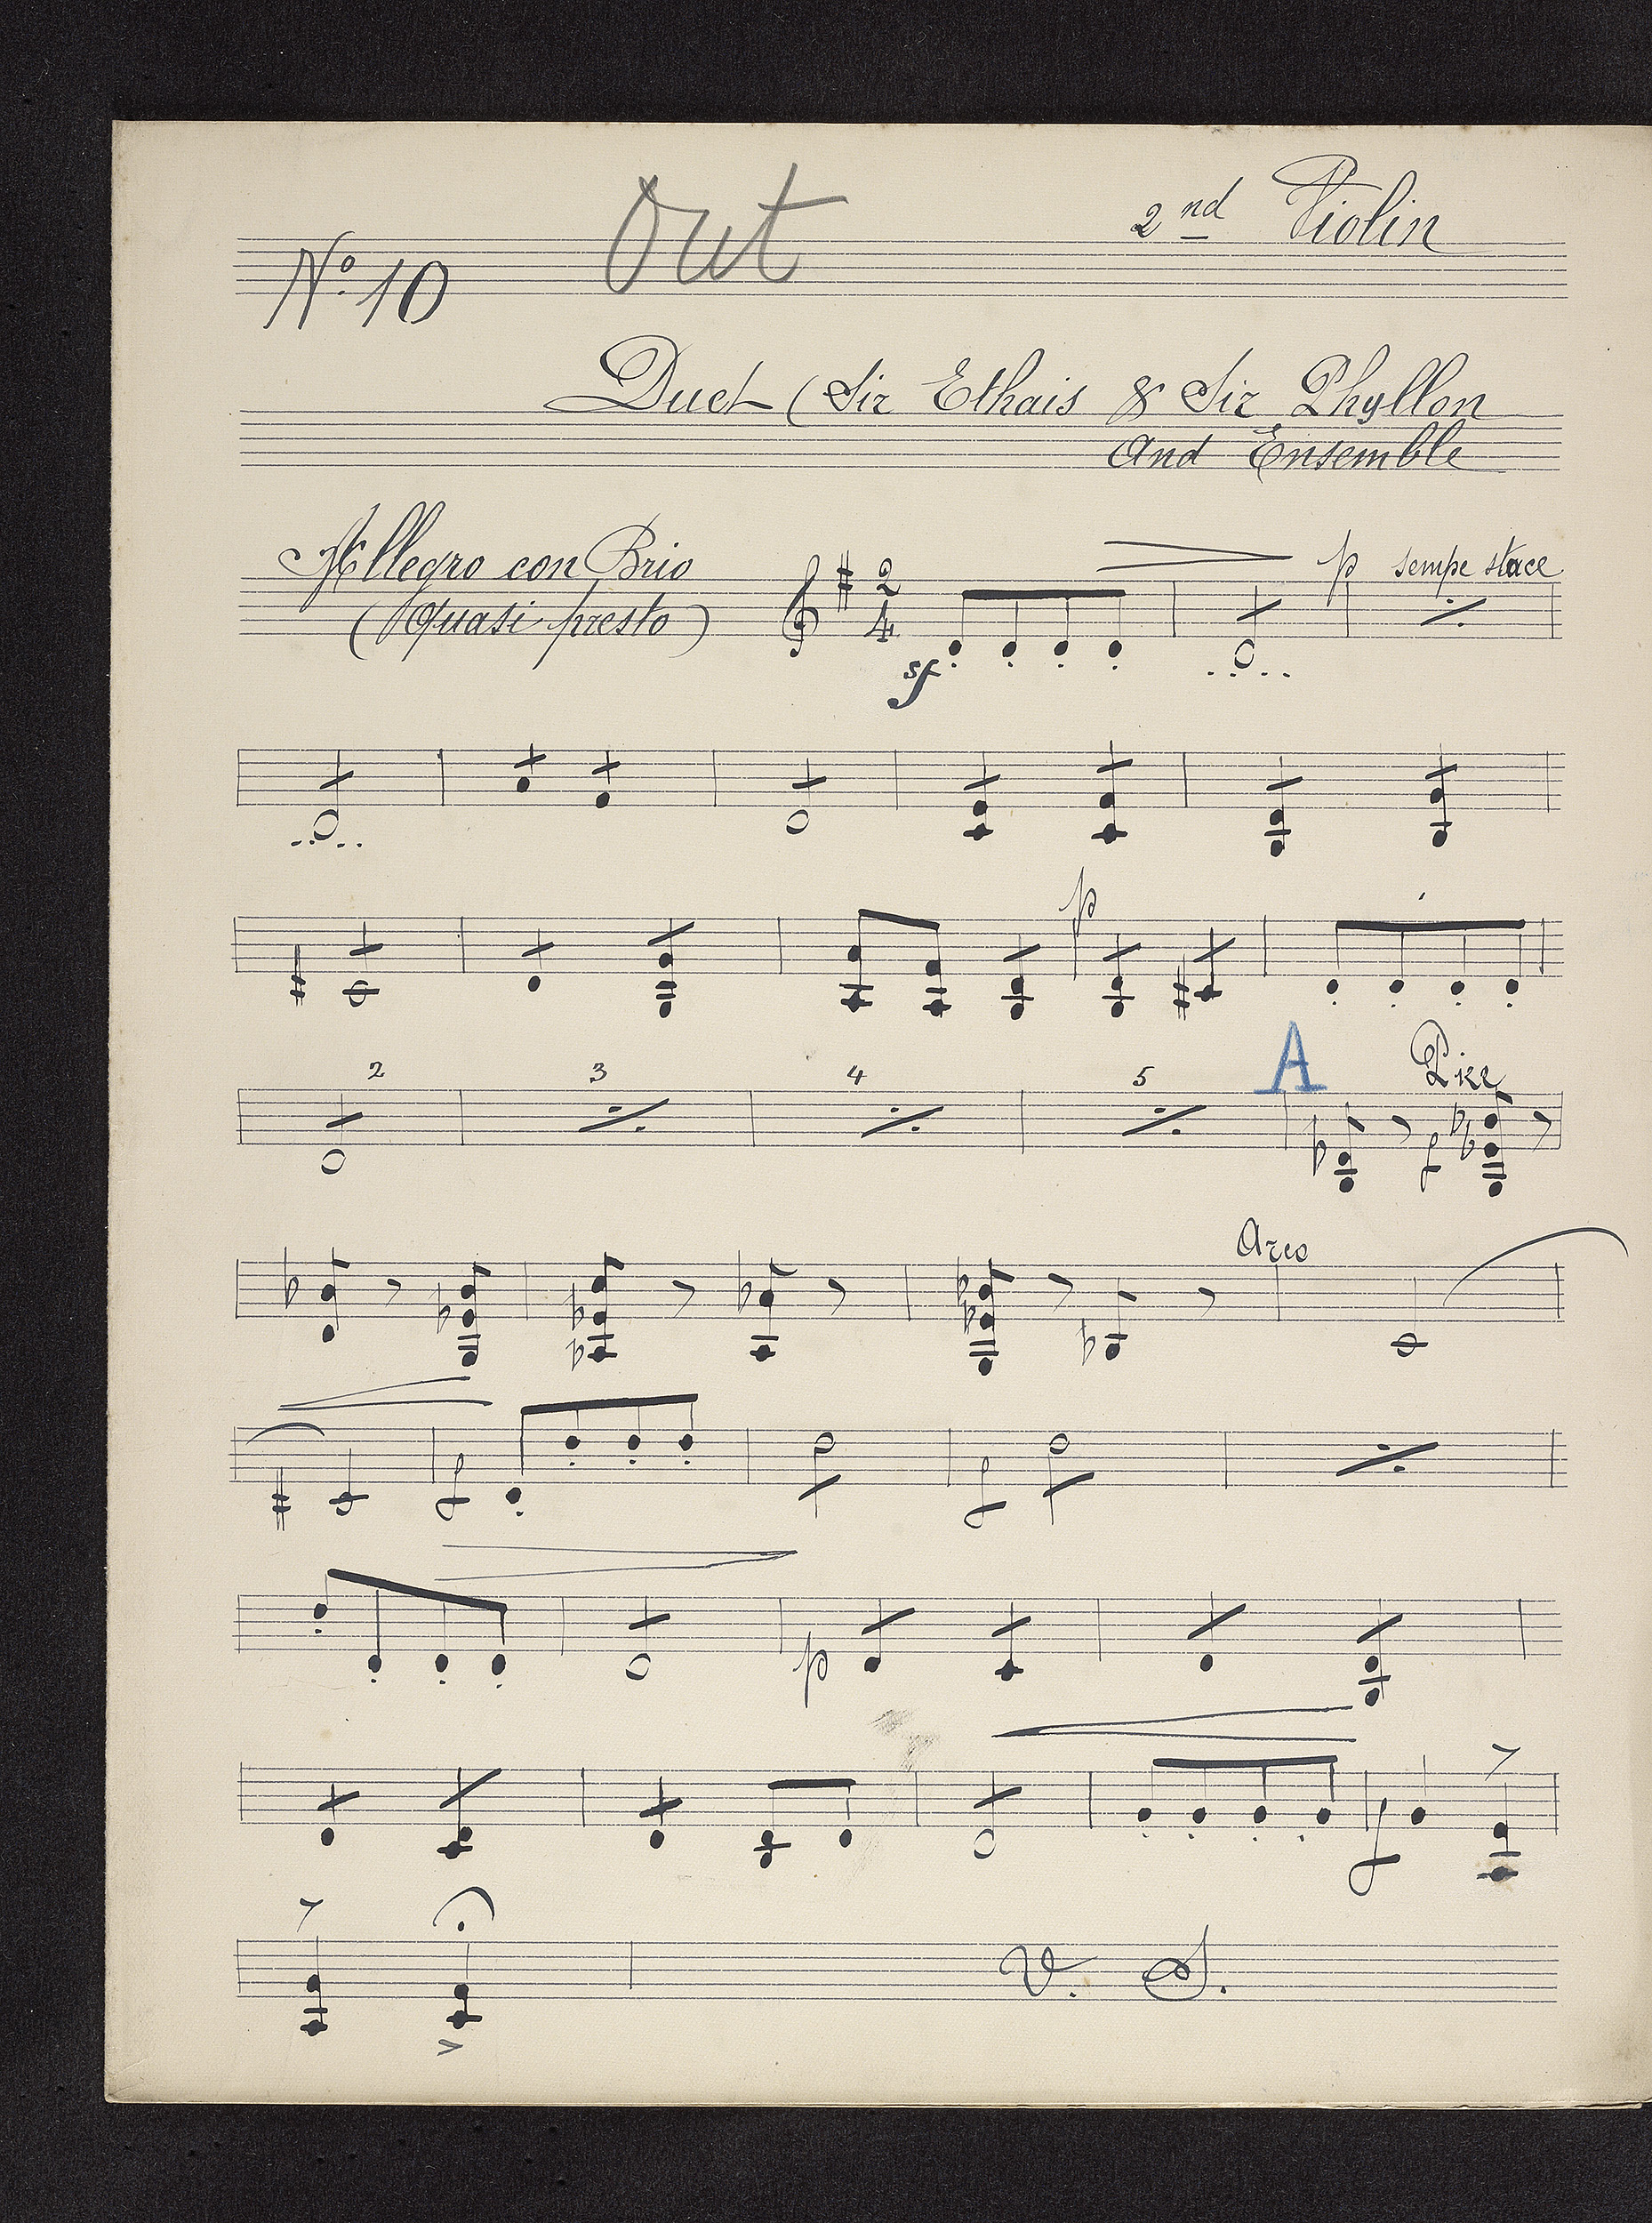 Out
2nd Violin
No. 10
Duet (Sir Ethais & Sir Phyllon
And Ensemble
Allegro con Brio
(Quasi presto)
2
4
sf
p sempe stacc
p
2 3 4 5 A Pizz
f
Arco
f
f
p
f
V. S.